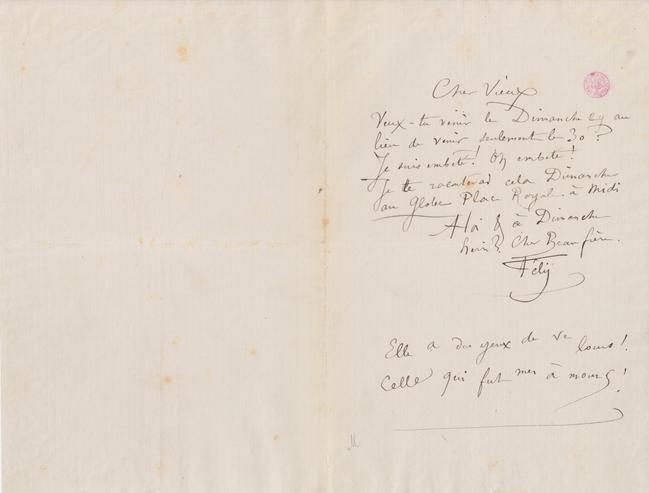 Cher Vieux
Veux-tu venir le Dimanche 29 au
lieu de venir seulement le 30 ?
Je suis embêté ! Oh embêté !
Je te raconterai cela Dimanche
au Globe Place Royal à Midi
A toi & à Dimanche
hein ? Cher Beaufrère.
Fély
Elle a des yeux de ve lours !
Celle qui fut mes à mours !
M